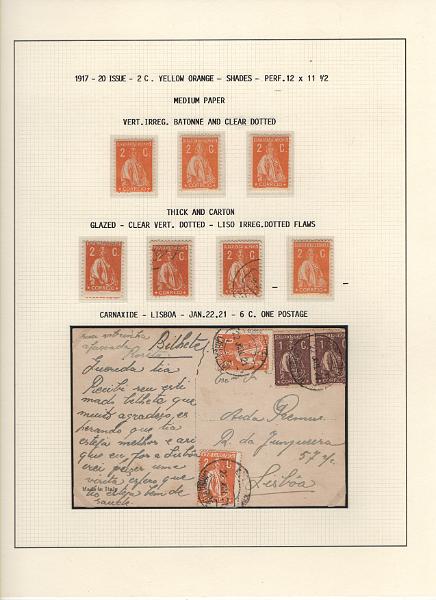 1917 - 20 ISSUE - 2 C. YELLOW ORANGE - SHADES - PERF.12 x 11 1/2
MEDIUM PAPER
VERT.IRREG. BATONNE AND CLEAR DOTTED
2 C.
CORREIO
2 C.
CORREIO
2 C.
CORREIO
THICK AND CARTON
GLAZED - CLEAR VERT. DOTTED - LISO IRREG.DOTTED FLAWS
2 C.
CORREIO
2 C.
CORREIO
2 C.
CORREIO
2 C.
CORREIO
CARNAXIDE - LISBOA - JAN.22.21 - 6 C. ONE POSTAGE
Bilhete
Querida tia
Recibi seu esti
mado bilhete que
muito agradeço es
perando que tia
esteja melhor e
que em for a Lisbôa
uma
visita espero que
esteja bem de
saude
Made in Italy
R. da Junqueira
57
Lisbôa